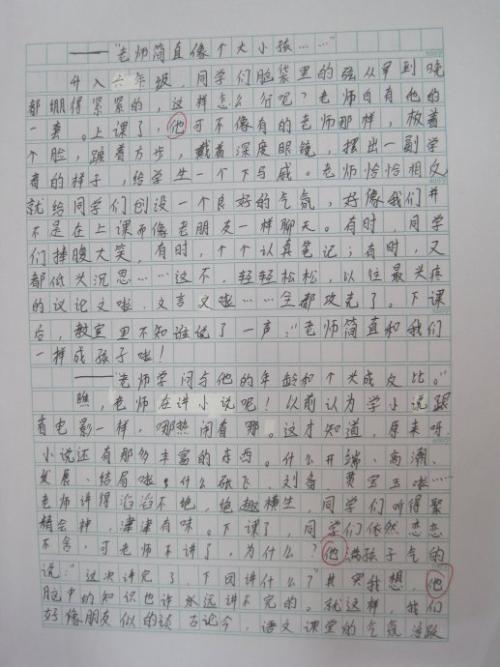 ——“老师简直像个大小孩……”
升入六年级，同学们脑袋里的弦从早到晚
都绷得紧紧的，这样怎么行呢？老师自有他的
一套。上课了，他可不像有的老师那样，板着
个脸，踱着方步，戴着深度眼镜，摆出一副学
者的样子，给学生一个下马威。老师恰恰相反
就给同学们创设一个良好的气氛，好像我们并
不是在上课而像老朋友一样聊天。有时，同学
们捧腹大笑，有时，个个认真笔记；有时，又
都低头沉思……这不，轻轻松松，以往最头疼
的议论文啦，文言文啦……全都攻克了。下课
后，教室里不知谁说了一声：“老师简直和我们
一样成孩子啦！
——“老师学问与他的年龄和个头成反比。”
瞧，老师在讲小说呢！以前认为学小说跟
看电影一样，哪热闹看哪。这才知道，原来呀
小说还有那多丰富的东西。什么开端、高潮、
发展、结局啦；什么张飞、刘备、贾宝玉啦……
老师讲得滔滔不绝，绝趣横生，同学们听得聚
精会神，津津有味。下课了，同学们依然恋恋
不舍，可老师不讲了，为什么？他满孩子气的
说：“这次讲完了，下回讲什么？”其实我想，他
脑中的知识也许永远讲不完的。就这样，我们
好像朋友似的谈古论今，语文课堂的气氛活跃